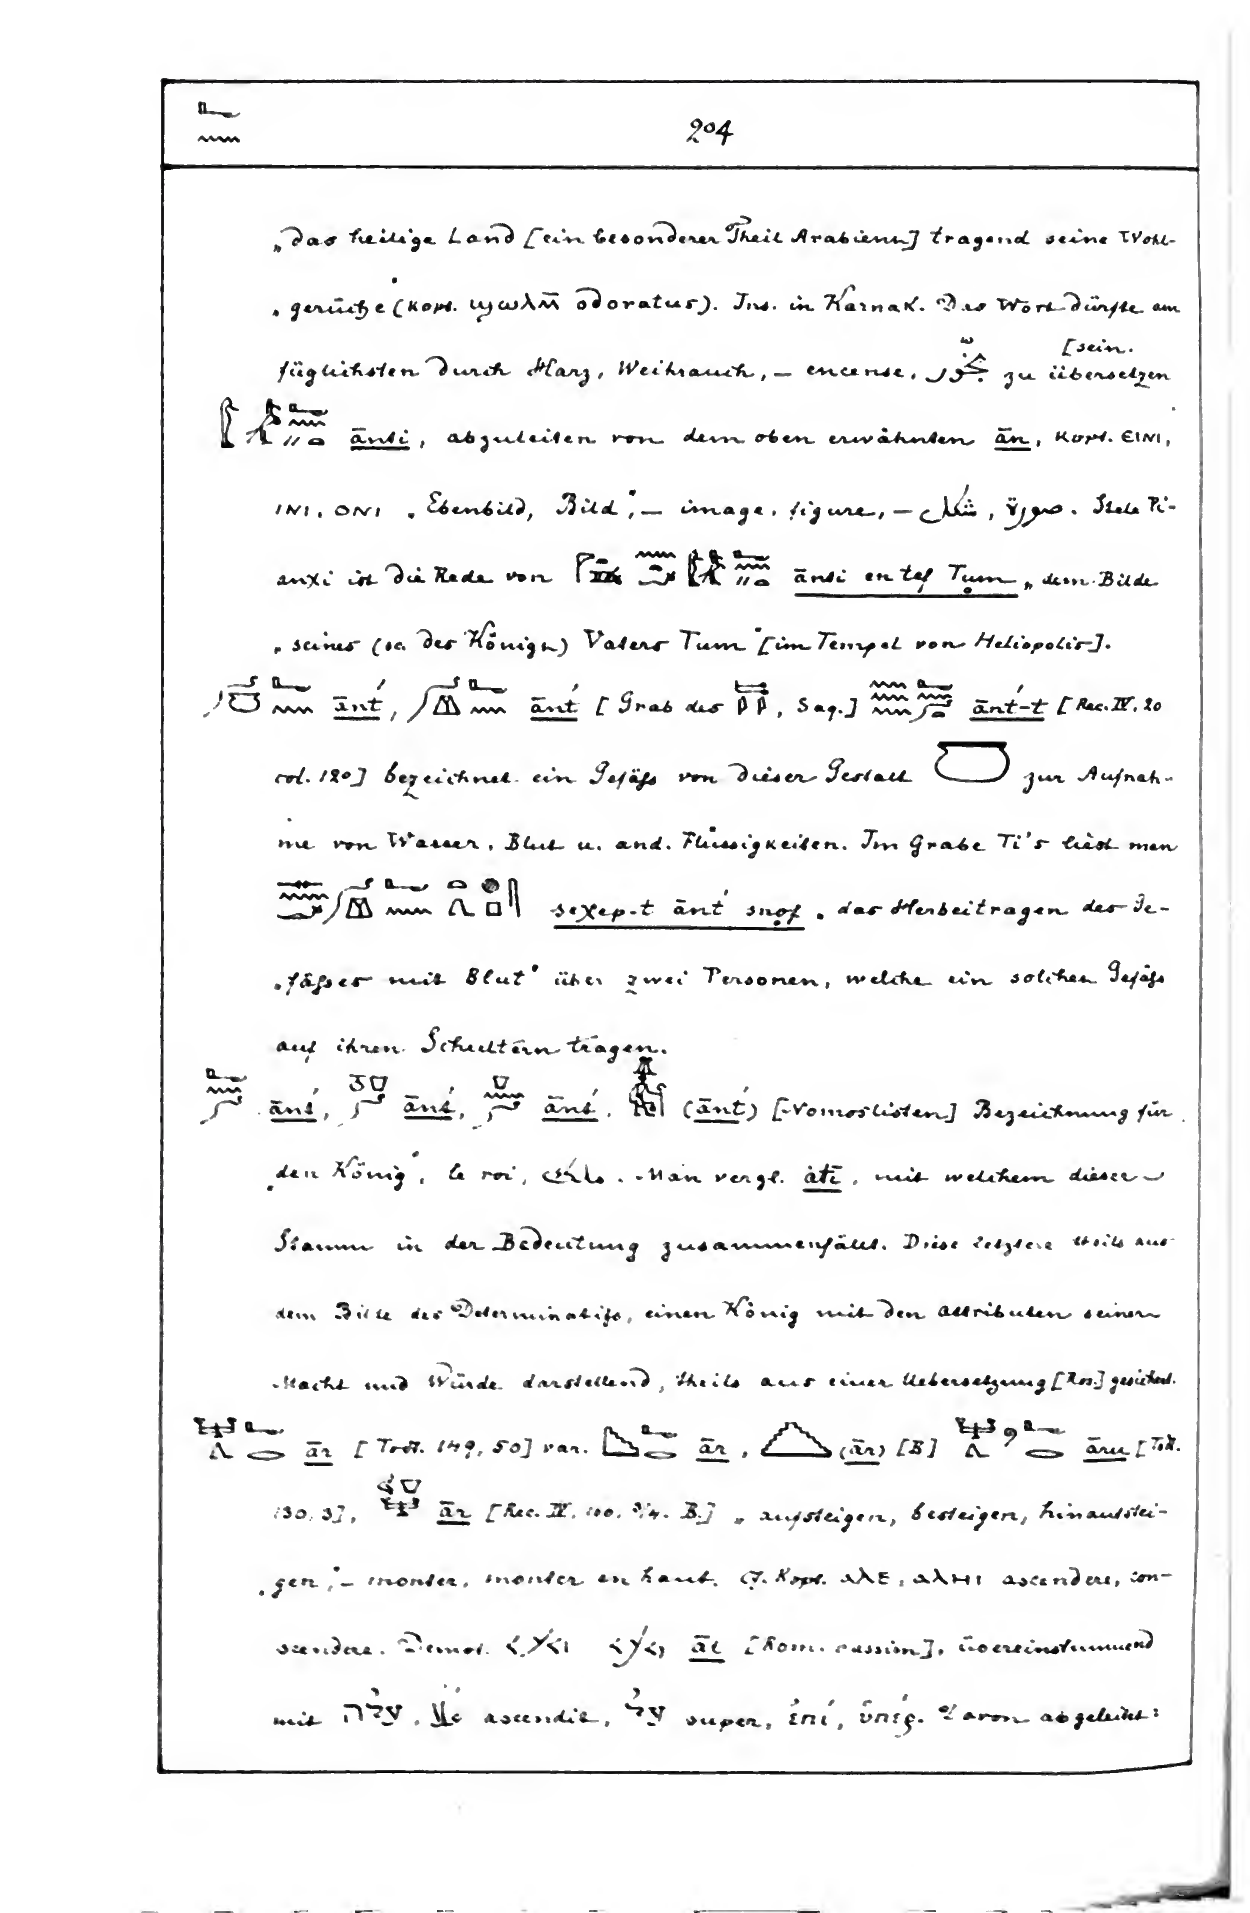 204
„das heilige Land [ein besonderer Theil Arabiens] tragend seine Wohl-
„gerüche (Kopt. ϣⲱⲗⲙ̅ odoratus). Ins. in Karnak. Das Wort dürfte am
[sein.
füglichsten durch Harz, Weihrauch, – encense, بخور zu übersetzen
ānti, abzuleiten von dem oben erwähnten ān, Kopt. ⲉⲓⲛⲓ,
ⲓⲛⲓ, ⲟⲛⲓ „Ebenbild, Bild“, – image, figure, – شكل, صورة. Stele Pi-
anχi ist die Rede von ānti en tef Tum „dem Bilde
„seines (sc. des Königs) Vaters Tum“ [im Tempel von Heliopolis].
ānt́, ānt́ [Grab des , Saq.] ānt́-t [Rec. IV, 20
col. 120] bezeichnet ein Gefäſs von dieser Gestalt zur Aufnah-
me von Wasser, Blut u. and. Flüssigkeiten. Im Grabe Ti's liest man
seχep-t ānt́ snof „das Herbeitragen des Ge-
„fäſses mit Blut“ über zwei Personen, welche ein solches Gefäſs
auf ihren Schultern tragen.
ānt́, ānt́, ānt́, (ānt́) [Nomoslisten] Bezeichnung für
„den König“, le roi, ملك. Man vergl. àti, mit welchem dieser
Stamm in der Bedeutung zusammenfällt. Diese letztere theils aus
dem Bilde des Determinatifs, einen König mit den Attributen seiner
Macht und Würde darstellend, theils aus einer Uebersetzung [Ros.] gesichert.
ār [Todt. 149, 50] var. ār, (ār) [B] āru [Todt.
130, 3], ār [Rec. IV, 100. B.] „aufsteigen, besteigen, hinaufstei-
„gen“, – monter, monter en haut. Cf. Kopt. ⲁⲗⲉ, ⲁⲗⲏⲓ ascendere, con-
scendere. Demot. āl [Rom. passim], übereinstimmend
mit עלה, علا ascendit, על super, ἐπί, ὑπέρ. Davon abgeleitet: